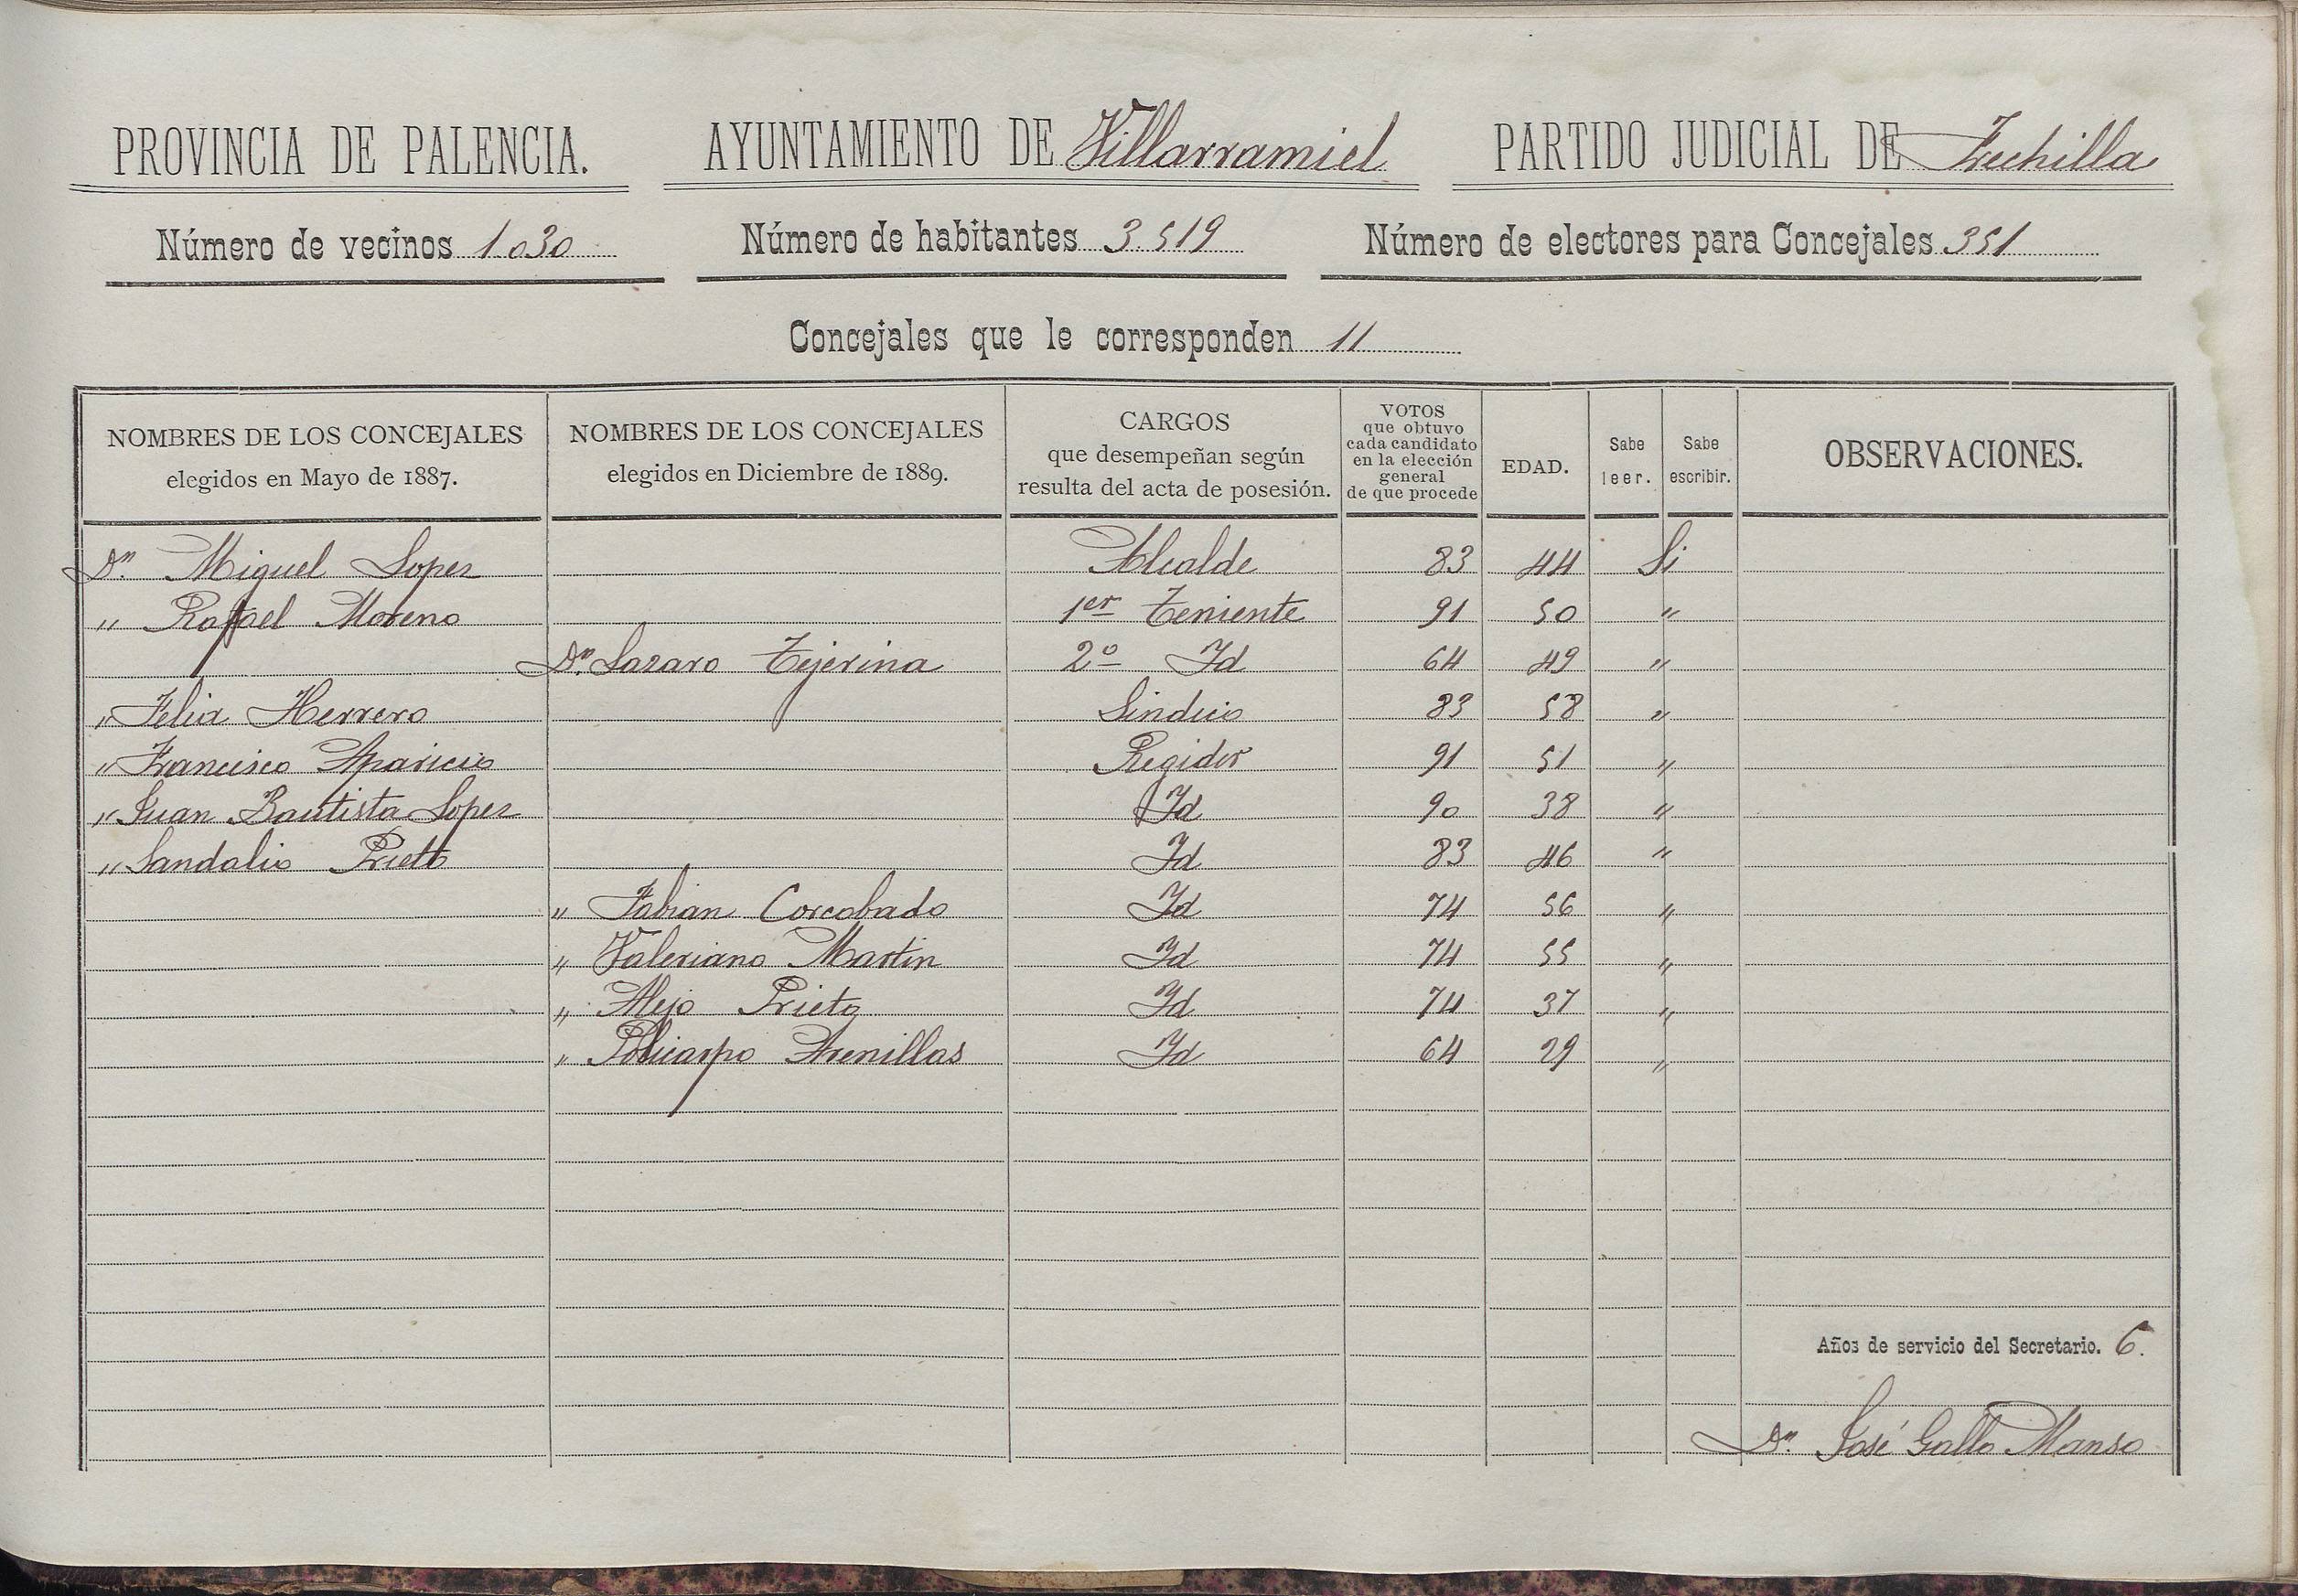 PROVINCIA DE PALENCIA. AYUNTAMIENTO DE Villarramiel PARTIDO JUDICIAL DE Frechilla
Número de vecinos 1.030 Número de habitantes 3.519 Número de electores para Concejales 351
Concejales que le corresponden 11
NOMBRES DE LOS CONCEJALES
elegidos en Mayo de 1887.
NOMBRES DE LOS CONCEJALES
elegidos en Diciembre de 1889.
CARGOS
que desempeñan según
resulta del acta de posesión.
VOTOS
que obtuvo
cada candidato
en la elección
general
de que procede
EDAD.
Sabe
leer.
Sabe
escribir.
OBSERVACIONES.
Dn. Miguel Lopez Alcalde 83 44 Si
" Rafael Moreno 1er Teniente 91 50 "
Dn. Lazaro Tejerina 2o Id 64 49 "
" Felix Herrero Sindico 83 58 "
" Francisco Aparicio Regidor 91 51 "
" Juan Bautista Lopez Id 90 38 "
" Sandalio Prieto Id 83 46 "
" Fabian Corcobado Id 74 56 "
" Valeriano Martin Id 74 55 "
" Alejo Prieto Id 74 37 "
" Policarpo Arenillas Id 64 29 "
Años de servicio del Secretario. 6.
Dn. José Gallo Manso